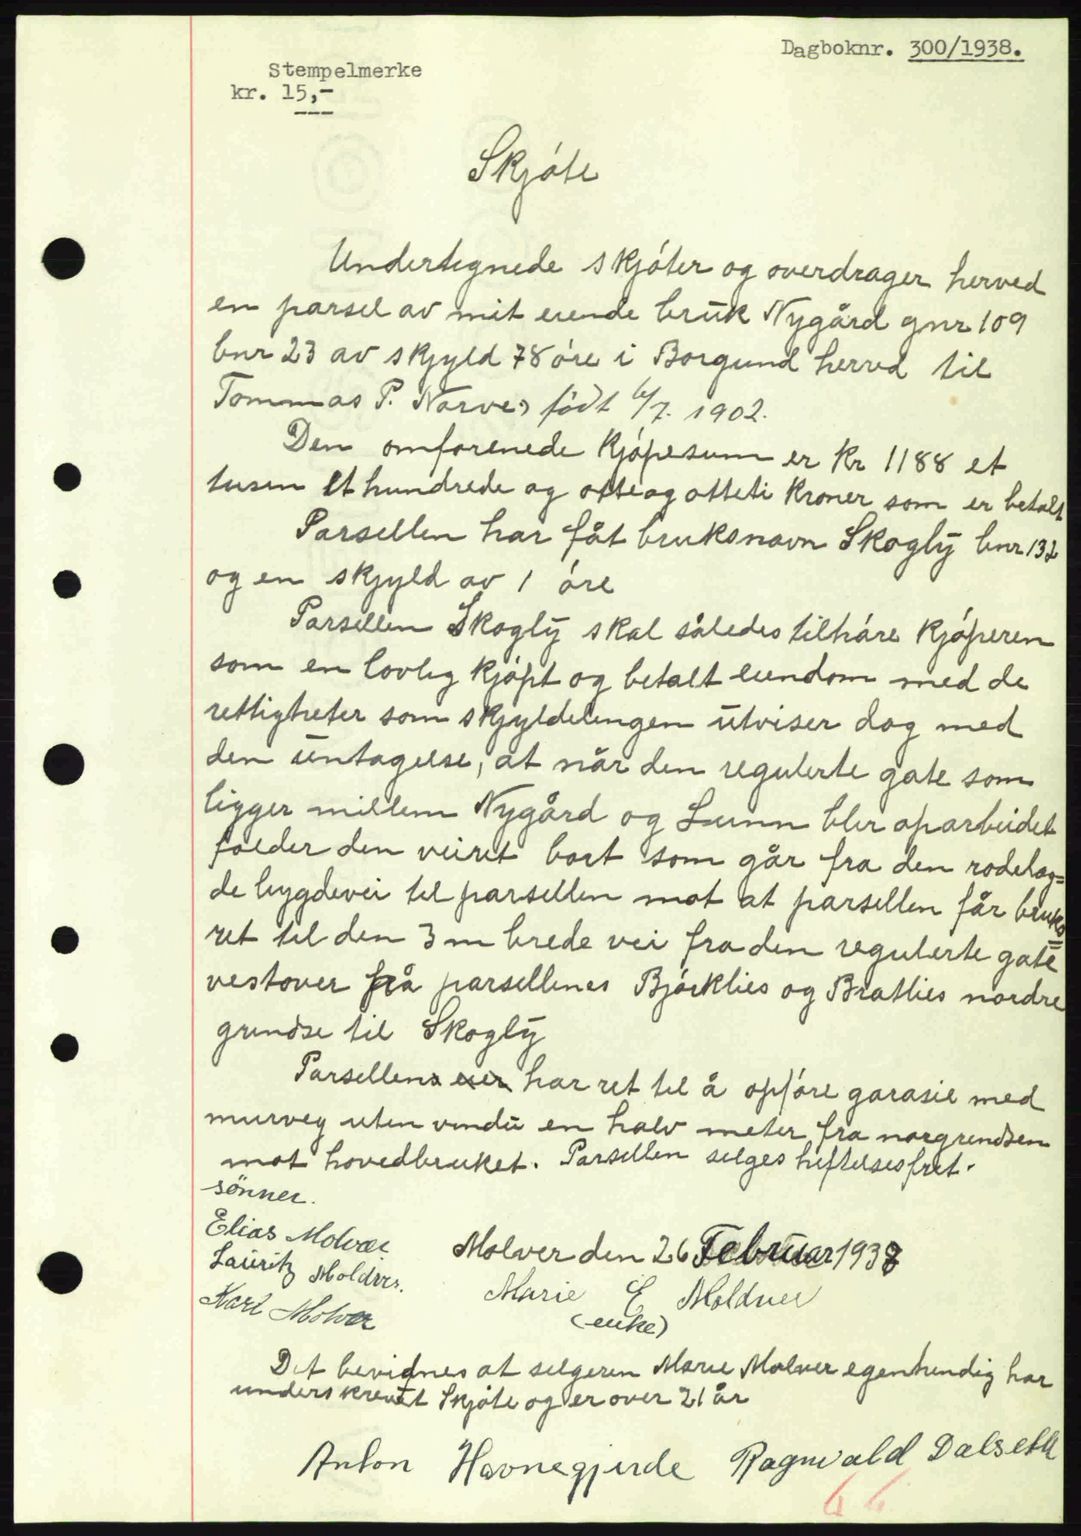 Dagboknr. 300/1938.
Stempelmerke
kr. 15,-
Skjóte
Undertegnede skjóter og overdrager herved
en parsel av mit eiende bruk Nygård gnr 109
bnr 23 av skjyld 78 óre i Borgund herred til
Tommas P. Narve, født 6/7. 1902.
Den omforenede Kjópesum er Kr 1188 et
tusen et hundrede og otteog otteti Kroner som er betalt
Parsellen har fåt bruksnavn Skogly bnr 132
og en skjyld av 1 óre
Parsellen Skogly skal således tilhóre Kjóperen
som en lovlig Kjópt og betalt eiendom med de
rettigheter som skjyldelingen utviser dog med
den untagelse, at når den regulerte gate som
ligger millem Nygård og Lunn blir oparbeidet
falder den veiret bort som går fra den rodelag=
de bygdevei til parsellen mot at parsellen får bruks
ret til den 3 m brede vei fra den regulerte gate
vestover frå parsellenes Bjórklies og Bratlies nordre
grendse til Skogly
Parsellens eier har ret til å opfóre garasie med
murveg uten vindu en halv meter fra norgrendsen
mot hovedbruket. Parsellen selges heftelsesfret.
sønner.
Elias Molvær
Lauritz Moldver.
Karl Molvær
Molver den 26 Februar 1938
Marie E Moldver
(enke)
Det bevidnes at selgeren Marie Molver egenhendig har
underskrevet Skjóte og er over 21 år
Anton Havnegjerde Ragnvald Dalseth
66